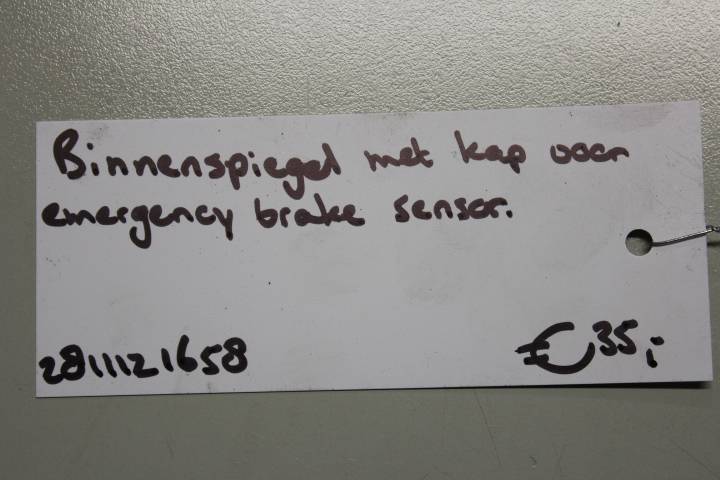 Binnenspiegel met kap voor
emergency brake sensor.
2811121658
€35,-